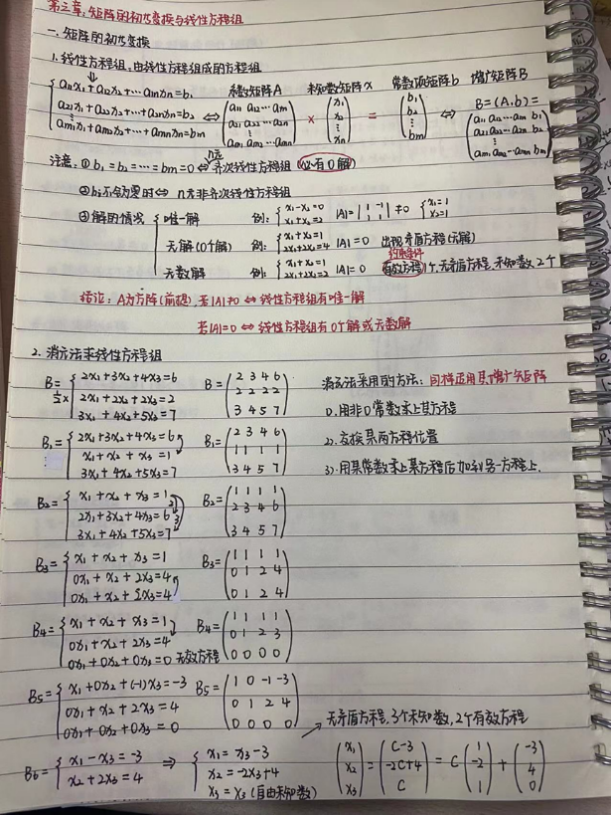 第三章:矩阵的初等变换与线性方程组
一.矩阵的初等变换
1.线性方程组:由线性方程组成的方程组
系数矩阵A 未知数矩阵x 常数项矩阵b 增广矩阵B
{ a₁₁x₁+a₁₂x₂+…a₁ₙxₙ=b₁
a₂₁x₁+a₂₂x₂+…+a₂ₙxₙ=b₂
⋮
aₘ₁x₁+aₘ₂x₂+…+aₘₙxₙ=bₘ ⇔ (a₁₁ a₁₂…a₁ₙ
a₂₁ a₂₂…a₂ₙ
⋮
aₘ₁ aₘ₂…aₘₙ) × (x₁
x₂
⋮
xₙ) = (b₁
b₂
⋮
bₘ) ⇔ B=(A,b)=
(a₁₁ a₁₂…a₁ₙ b₁
a₂₁ a₂₂…a₂ₙ b₂
⋮
aₘ₁ aₘ₂…aₘₙ bₘ)
注意:①b₁=b₂=…=bₘ=0⇔n元齐次线性方程组(必有0解)
②bᵢ不全为零时⇔n元非齐次线性方程组
③解的情况 { 唯一解 例:{ x₁-x₂=0
x₁+x₂=2 |A|=|1 -1
1 1|≠0 { x₁=1
x₂=1
无解(0个解) 例:{ x₁+x₂=1
2x₁+2x₂=4 |A|=0 出现矛盾方程(无解)
约束条件
无数解 例:{ x₁+x₂=1
2x₁+2x₂=2 |A|=0 有效方程1个,无矛盾方程,未知数2个
结论:A为方阵(前提),若|A|≠0⇔线性方程组有唯一解
若|A|=0⇔线性方程组有0个解或无数解
2.消元法求线性方程组
B= ½× { 2x₁+3x₂+4x₃=6
2x₁+2x₂+2x₃=2
3x₁+4x₂+5x₃=7 B=(2 3 4 6
2 2 2 2
3 4 5 7)
消元法采用的方法:同样适用其增广矩阵
1).用非0常数乘上某方程
2).交换某两方程位置
3).用某常数乘上某方程后加到另一方程上.
B₁={ 2x₁+3x₂+4x₃=6
x₁+x₂+x₃=1
3x₁+4x₂+5x₃=7 B₁=(2 3 4 6
1 1 1 1
3 4 5 7)
B₂={ x₁+x₂+x₃=1
2x₁+3x₂+4x₃=6
3x₁+4x₂+5x₃=7 B₂=(1 1 1 1
2 3 4 6
3 4 5 7)
B₃={ x₁+x₂+x₃=1
0x₁+x₂+2x₃=4
0x₁+x₂+2x₃=4 B₃=(1 1 1 1
0 1 2 4
0 1 2 4)
B₄={ x₁+x₂+x₃=1
0x₁+x₂+2x₃=4
0x₁+0x₂+0x₃=0 无效方程 B₄=(1 1 1 1
0 1 2 3
0 0 0 0)
B₅={ x₁+0x₂+(-1)x₃=-3
0x₁+x₂+2x₃=4
0x₁+0x₂+0x₃=0 B₅=(1 0 -1 -3
0 1 2 4
0 0 0 0)
无矛盾方程,3个未知数,2个有效方程
B₆={ x₁-x₃=-3
x₂+2x₃=4 ⇒ { x₁=x₃-3
x₂=-2x₃+4
x₃=x₃(自由未知数) (x₁
x₂
x₃)=(C-3
-2C+4
C)=C(1
-2
1)+(-3
4
0)